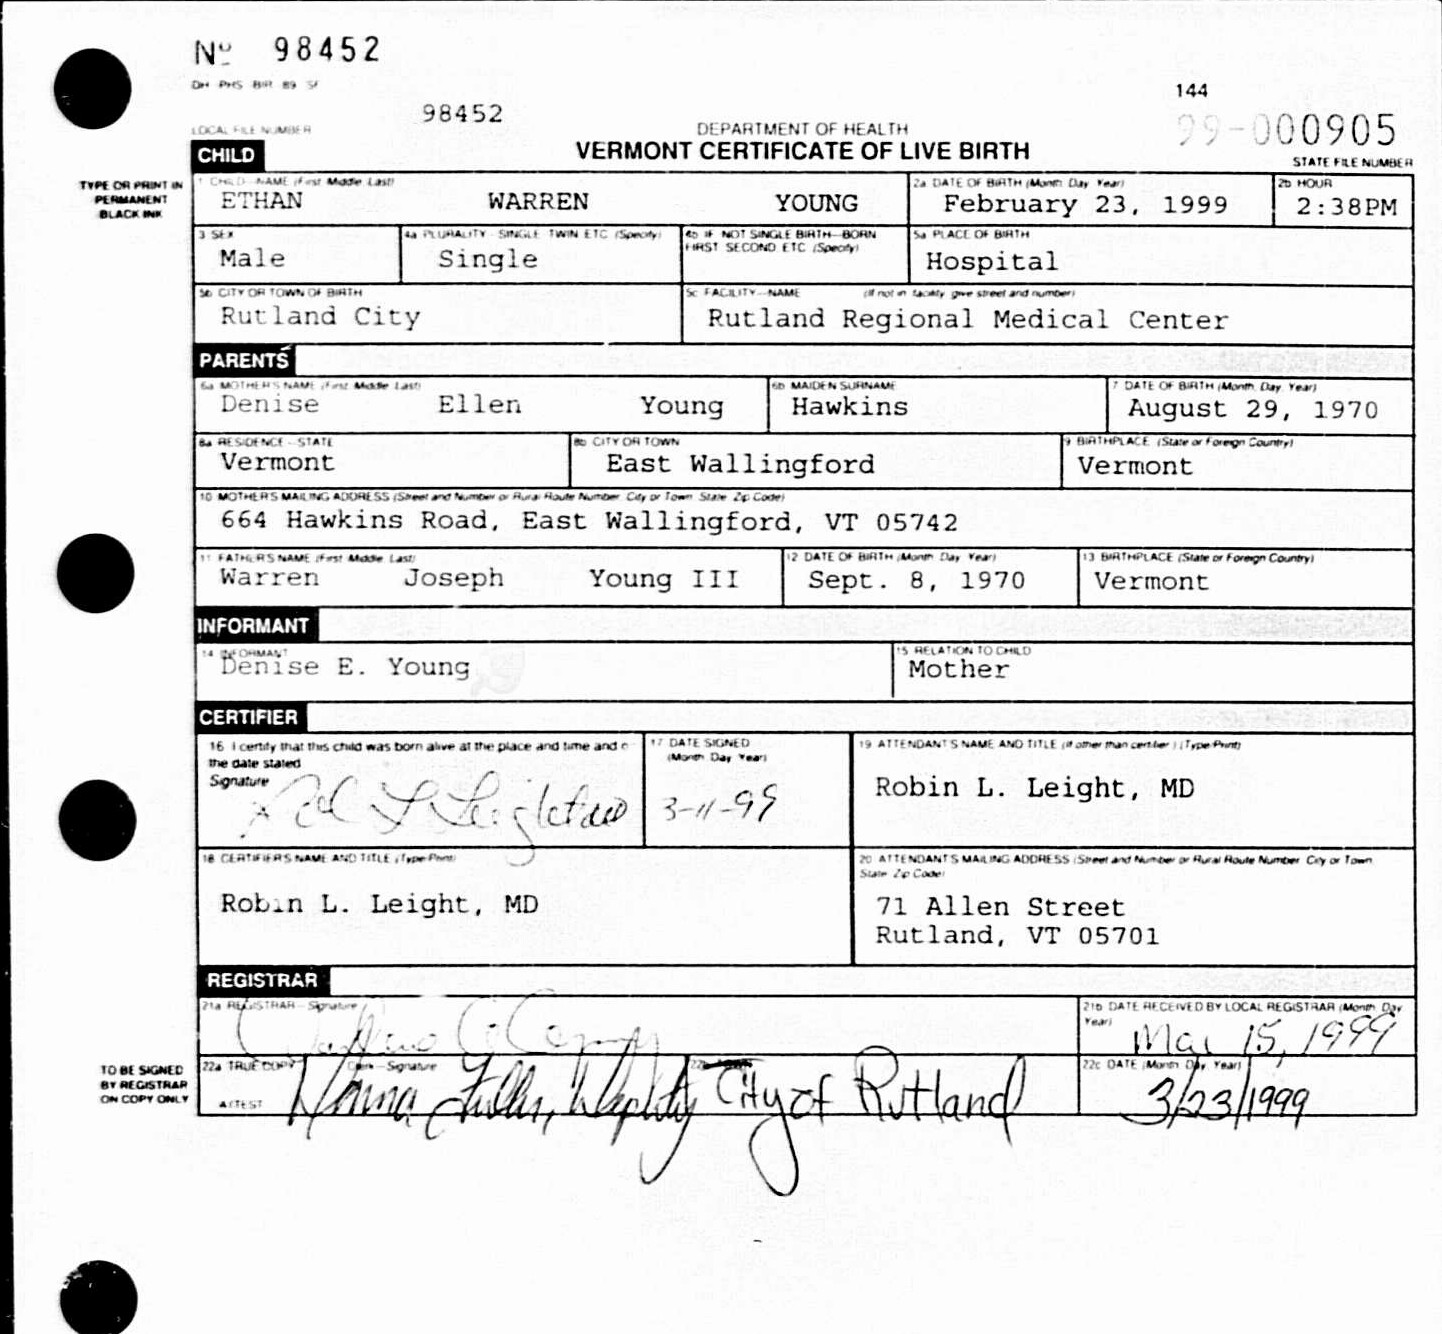 Nº 98452
DH PHS BIR 89 SF
98452
144
LOCAL FILE NUMBER
DEPARTMENT OF HEALTH
99-000905
CHILD
VERMONT CERTIFICATE OF LIVE BIRTH
STATE FILE NUMBER
TYPE OR PRINT IN
PERMANENT
BLACK INK
1 CHILD—NAME (First Middle Last)
ETHAN WARREN YOUNG
2a DATE OF BIRTH (Month Day Year)
February 23, 1999
2b HOUR
2:38PM
3 SEX
Male
4a PLURALITY - SINGLE TWIN ETC (Specify)
Single
4b IF NOT SINGLE BIRTH—BORN
FIRST SECOND ETC (Specify)
5a PLACE OF BIRTH
Hospital
5b CITY OR TOWN OF BIRTH
Rutland City
5c FACILITY—NAME (If not in facility give street and number)
Rutland Regional Medical Center
PARENTS
6a MOTHER'S NAME (First Middle Last)
Denise Ellen Young
6b MAIDEN SURNAME
Hawkins
7 DATE OF BIRTH (Month, Day, Year)
August 29, 1970
8a RESIDENCE - STATE
Vermont
8b CITY OR TOWN
East Wallingford
9 BIRTHPLACE (State or Foreign Country)
Vermont
10 MOTHER'S MAILING ADDRESS (Street and Number or Rural Route Number City or Town State Zip Code)
664 Hawkins Road, East Wallingford, VT 05742
11 FATHER'S NAME (First Middle Last)
Warren Joseph Young III
12 DATE OF BIRTH (Month Day Year)
Sept. 8, 1970
13 BIRTHPLACE (State or Foreign Country)
Vermont
INFORMANT
14 INFORMANT
Denise E. Young
15 RELATION TO CHILD
Mother
CERTIFIER
16 I certify that this child was born alive at the place and time and o
the date stated
Signature
17 DATE SIGNED
(Month Day Year)
3-11-99
19 ATTENDANT'S NAME AND TITLE (If other than certifier) (Type/Print)
Robin L. Leight, MD
18 CERTIFIER'S NAME AND TITLE (Type/Print)
Robin L. Leight, MD
20 ATTENDANT'S MAILING ADDRESS (Street and Number or Rural Route Number City or Town
State Zip Code)
71 Allen Street
Rutland, VT 05701
REGISTRAR
21a REGISTRAR—Signature
21b DATE RECEIVED BY LOCAL REGISTRAR (Month Day
Year)
Mar 15, 1999
TO BE SIGNED
BY REGISTRAR
ON COPY ONLY
22a TRUE COPY Clerk—Signature
ATTEST
Donna Fuller, Deputy
City of Rutland
22c DATE (Month Day Year)
3/23/1999